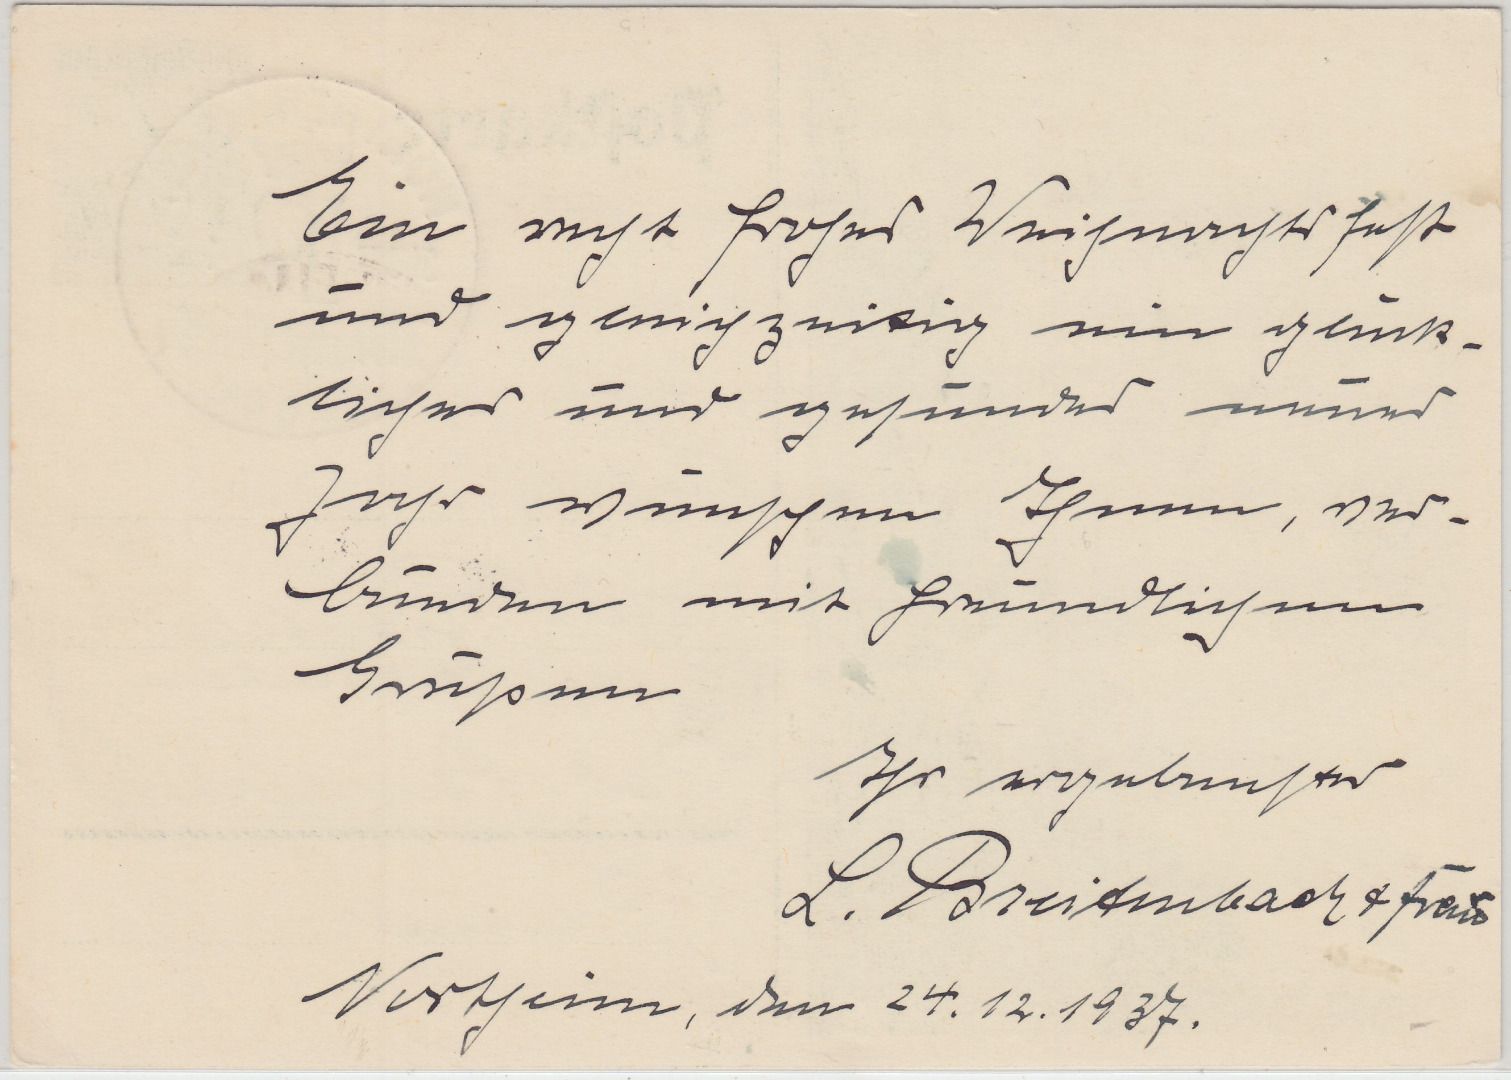 Ein recht frohes Weihnachtsfest
und gleichzeitig ein glück-
liches und gesundes neues
Jahr wünschen Ihnen, ver-
bunden mit freundlichen
Grüßen
Ihr ergebenster
L. Breitenbach & Frau
Northeim, den 24.12.1937.